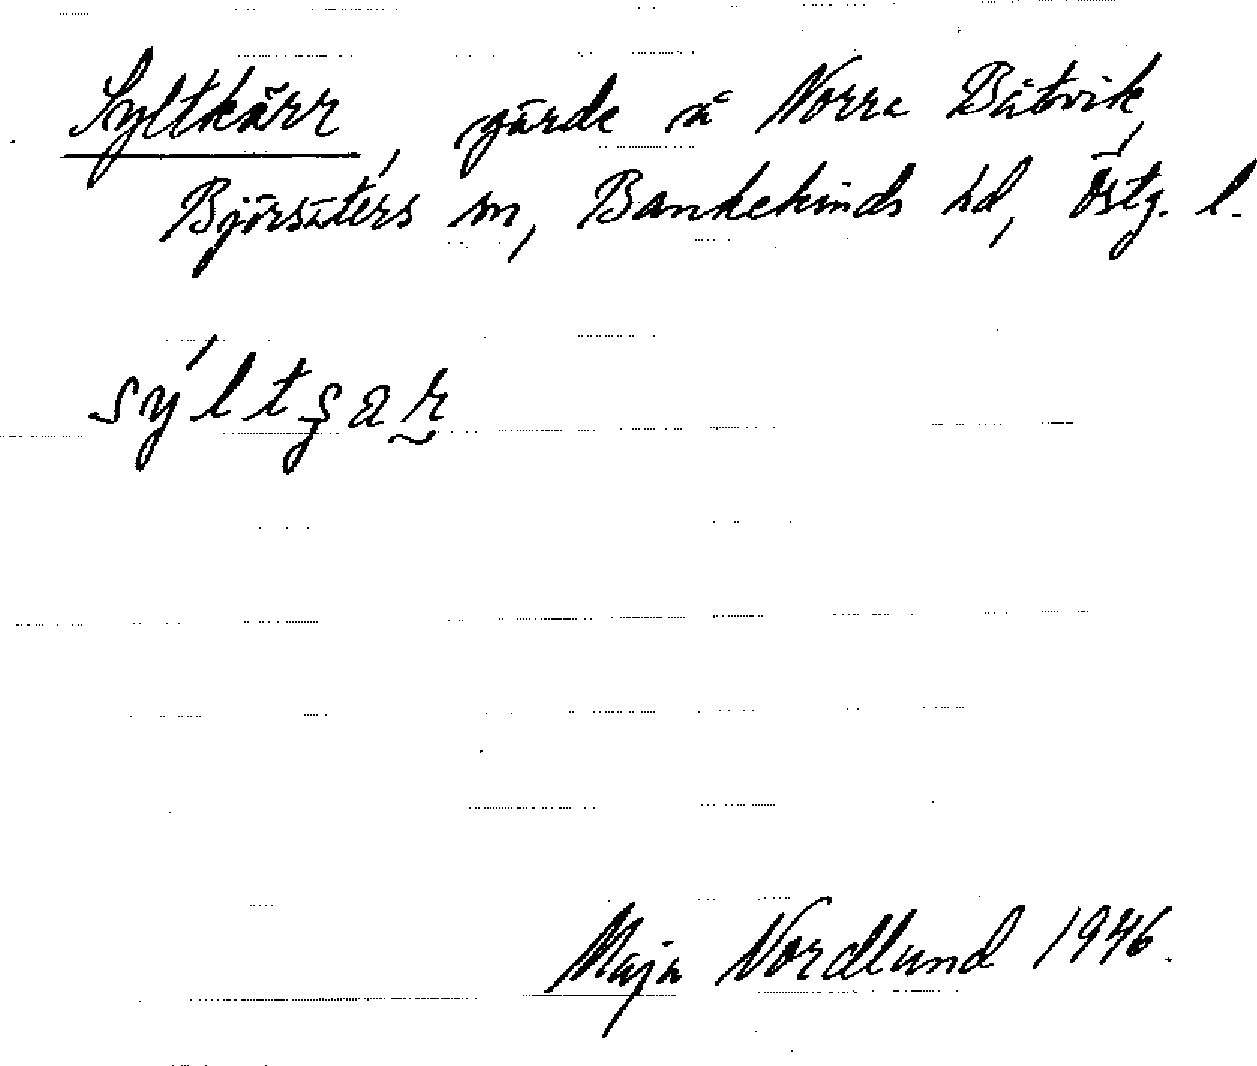 Syltkärr, gärde å Norra Båtvik,
Björsäters sn, Bankekinds hd, Östg. l.
Maja Nordlund 1946.